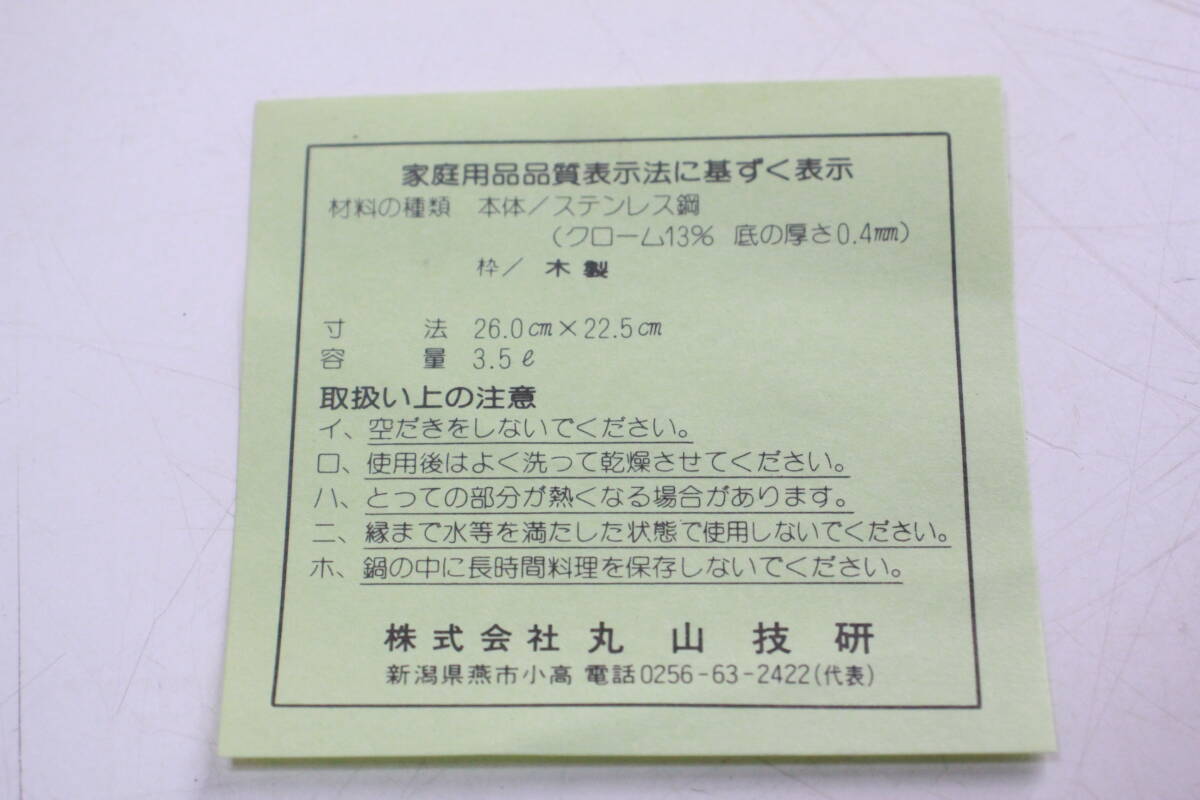 家庭用品品質表示法に基ずく表示
材料の種類 本体/ステンレス鋼
(クローム13% 底の厚さ0.4㎜)
枠/ 木製
寸法 26.0㎝×22.5㎝
容量 3.5ℓ
取扱い上の注意
イ、空だきをしないでください。
ロ、使用後はよく洗って乾燥させてください。
ハ、とっての部分が熱くなる場合があります。
ニ、縁まで水等を満たした状態で使用しないでください。
ホ、鍋の中に長時間料理を保存しないでください。
株式会社 丸山技研
新潟県燕市小高 電話0256-63-2422(代表)